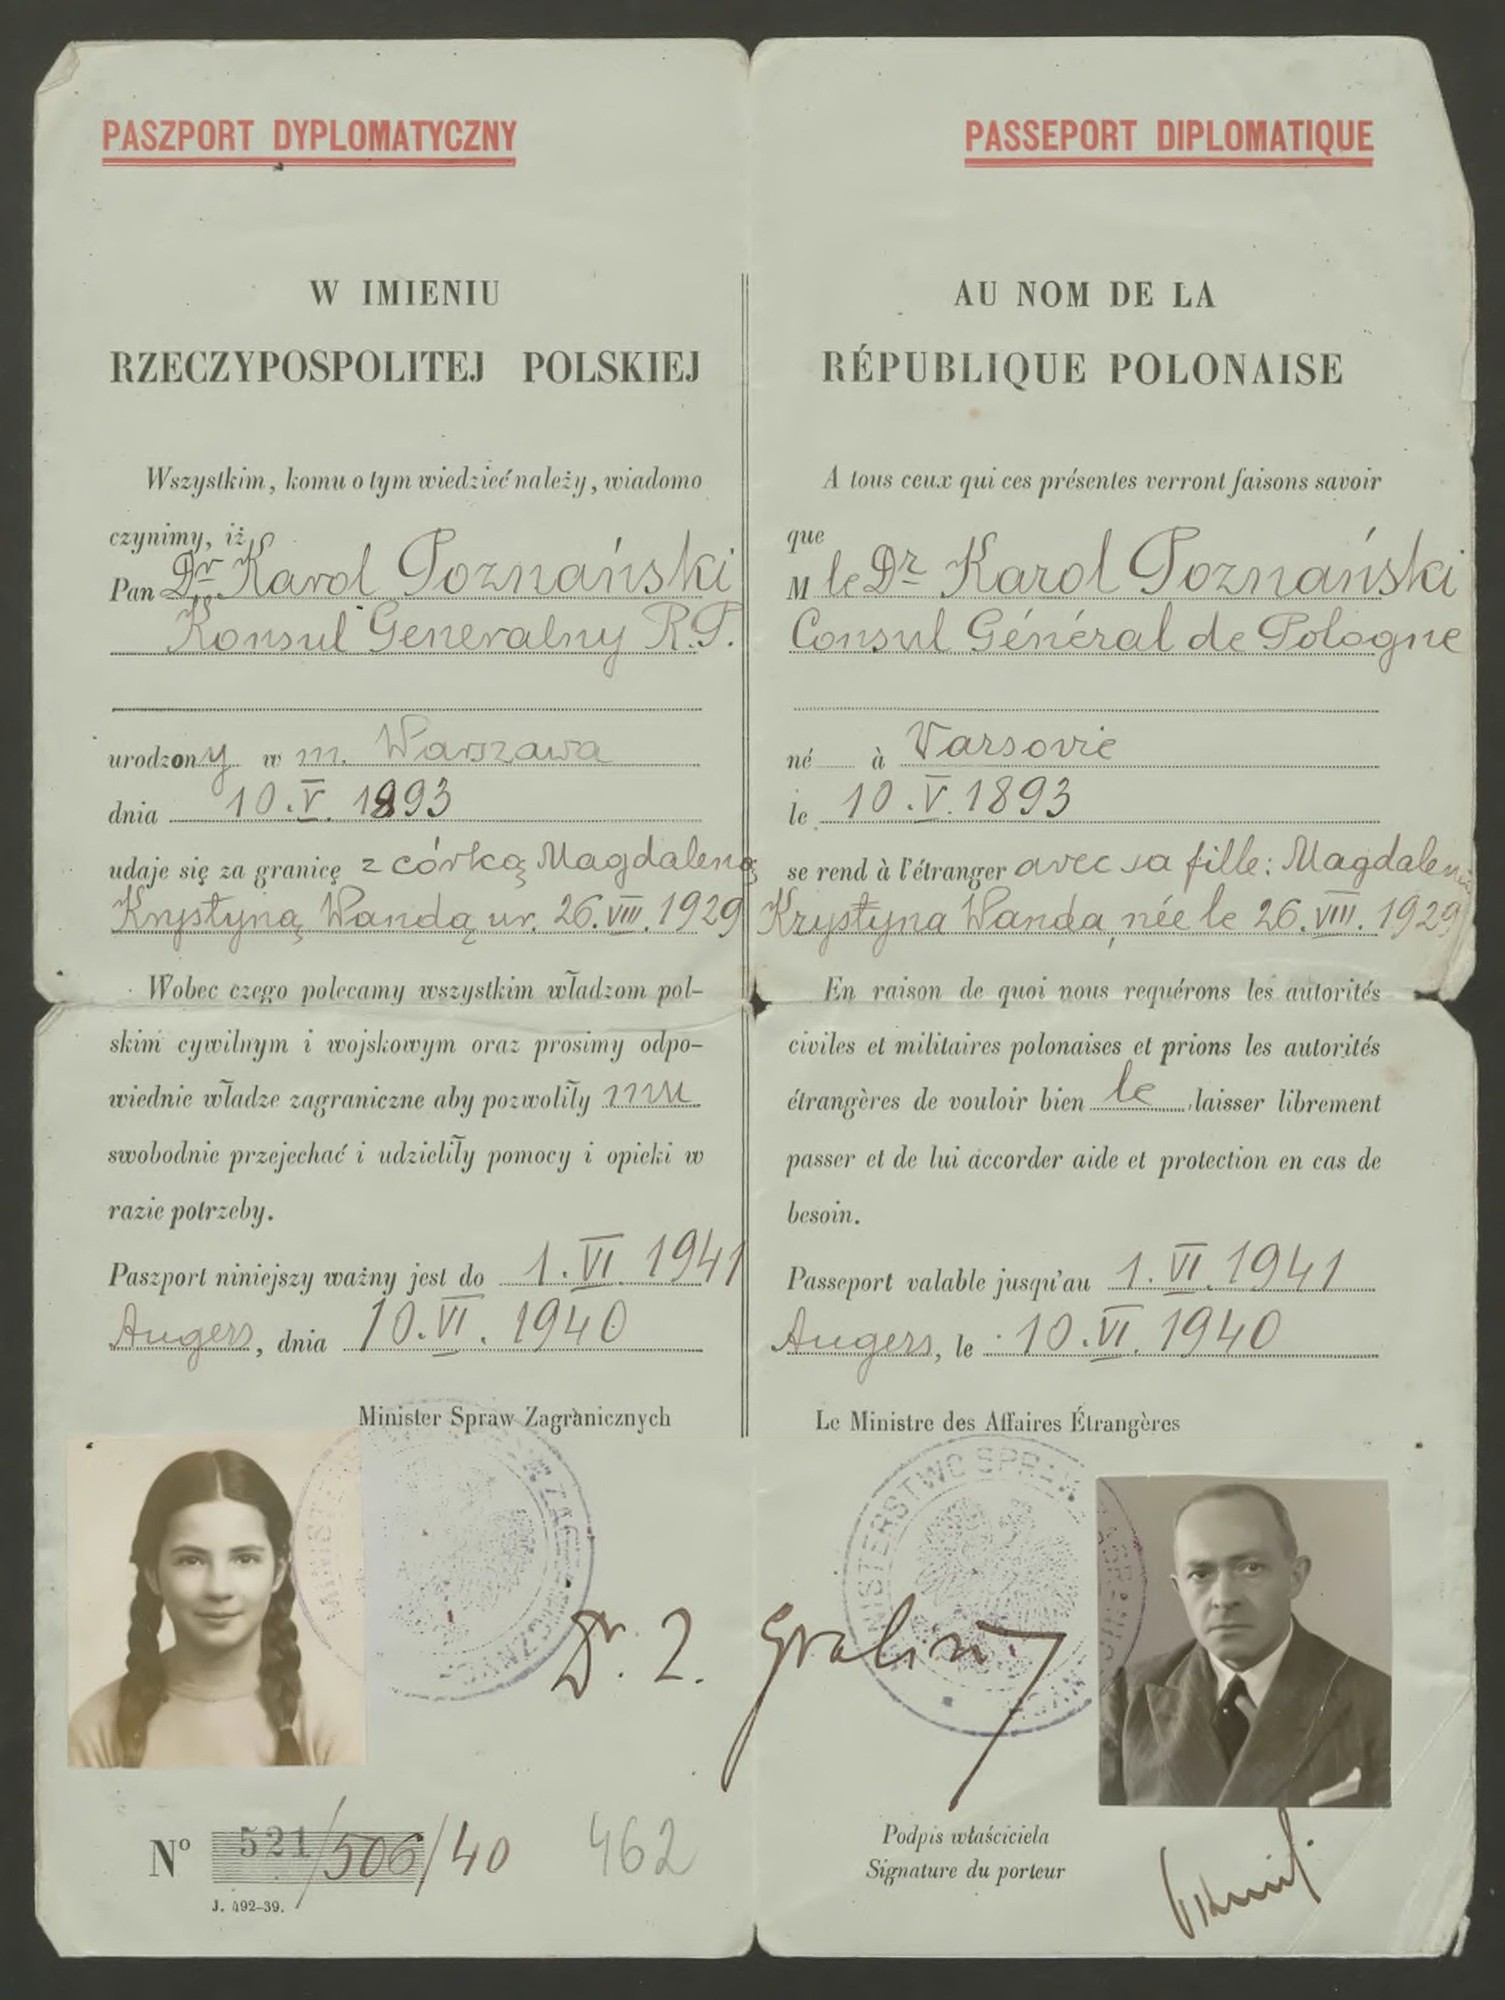 PASZPORT DYPLOMATYCZNY
W IMIENIU
RZECZYPOSPOLITEJ POLSKIEJ
Wszystkim, komu o tym wiedzieć należy, wiadomo
czynimy, iż
Pan Dr Karol Poznański
Konsul Generalny R.P.
urodzony w m. Warszawa
dnia 10.V.1893
udaje się za granicę z córką Magdaleną
Krystyną Wandą ur. 26.VIII.1929
Wobec czego polecamy wszystkim władzom pol-
skim cywilnym i wojskowym oraz prosimy odpo-
wiednie władze zagraniczne aby pozwoliły mu
swobodnie przejechać i udzieliły pomocy i opieki w
razie potrzeby.
Paszport niniejszy ważny jest do 1.VI.1941
Angers, dnia 10.VI.1940
Minister Spraw Zagranicznych
Nº 521/506/40 462
J. 492-39.
PASSEPORT DIPLOMATIQUE
AU NOM DE LA
RÉPUBLIQUE POLONAISE
A tous ceux qui ces présentes verront faisons savoir
que
M le Dr Karol Poznański
Consul Général de Pologne
né à Varsovie
le 10.V.1893
se rend à l'étranger avec sa fille: Magdalena
Krystyna Wanda, née le 26.VIII.1929
En raison de quoi nous requérons les autorités
civiles et militaires polonaises et prions les autorités
étrangères de vouloir bien le laisser librement
passer et de lui accorder aide et protection en cas de
besoin.
Passeport valable jusqu'au 1.VI.1941
Angers, le 10.VI.1940
Le Ministre des Affaires Étrangères
MINISTERSTWO SPRAW
Dr. Z.
Podpis właściciela
Signature du porteur